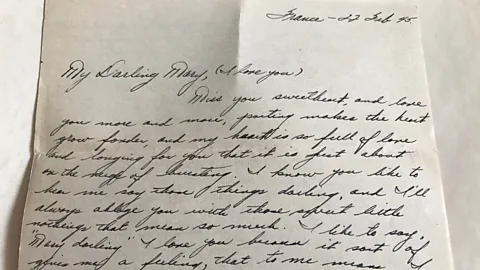 France - 22 Feb 45
My Darling Mary, (I love you)
Miss you sweetheart, and love
you more and more, parting makes the heart
grow fonder, and my heart is so full of love
and longing for you that it is just about
on the verge of bursting. I know you like to
hear me say those things darling, and I'll
always oblige you with those sweet little
nothings that mean so much. I like to say,
"Mary darling" I love you because it sort of
gives me a feeling, that to me means